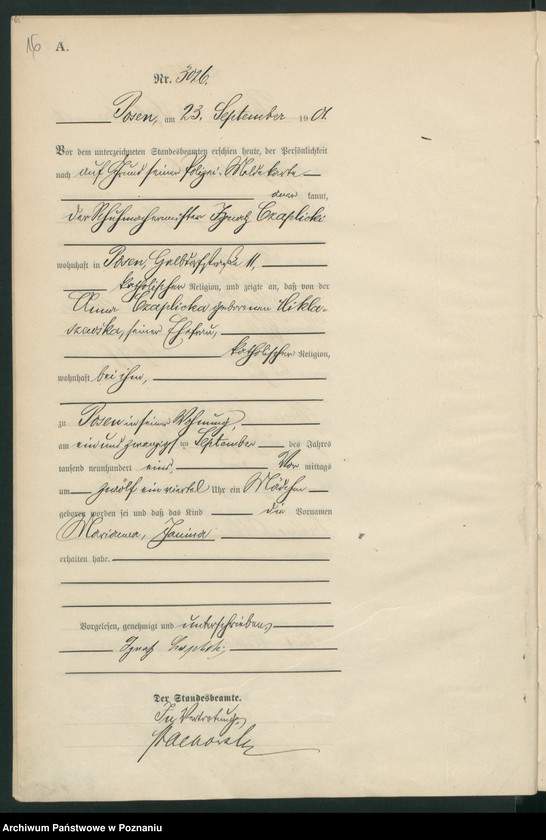 16
A.
Nr. 3026.
Posen, am 23. September 1901.
Vor dem unterzeichneten Standesbeamten erschien heute, der Persönlichkeit
nach auf Grund seiner Polizei-Meldekarte
kannt,
der Schuhmachermeister Ignatz Czaplicki
wohnhaft in Posen, 11,
katholischer Religion, und zeigte an, daß von der
Anna Czaplicka geborenen Mikla-
szewska, seiner Ehefrau,
katholischer Religion,
wohnhaft bei ihm,
zu Posen in seiner Wohnung,
am ein und zwanzigsten September des Jahres
tausend neunhundert eins Vor mittags
um zwölf einviertel Uhr ein Mädchen
geboren worden sei und daß das Kind die Vornamen
Marianna, Janina
erhalten habe.
Vorgelesen, genehmigt und unterschrieben
Der Standesbeamte.
In Vertretung
Archiwum Państwowe w Poznaniu